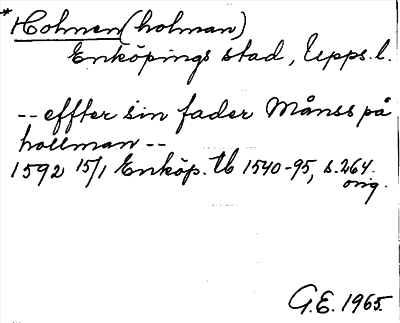 *Holmen (holman)
Enköpings stad, Upps. l.
-- effter sin fader Månss på
hollman --
1592 15/1 Enköp. tb 1540-95, s. 264.
orig.
G.E. 1965.